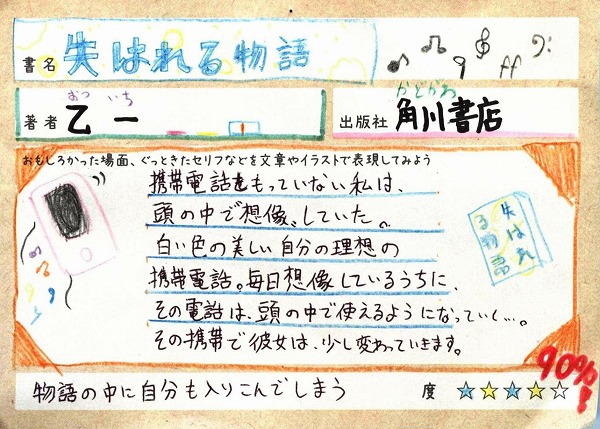 書名 失はれる物語
著者 乙一
おつ いち
出版社 角川書店
かどかわ
おもしろかった場面、ぐっときたセリフなどを文章やイラストで表現してみよう
携帯電話をもっていない私は、
頭の中で想像、していた。
白い色の美しい自分の理想の
携帯電話。毎日想像しているうちに、
その電話は、頭の中で使えるようになっていく…。
その携帯で彼女は、少し変わっていきます。
失はれ
る物語
物語の中に自分も入りこんでしまう 度 ★★★★☆
90%!